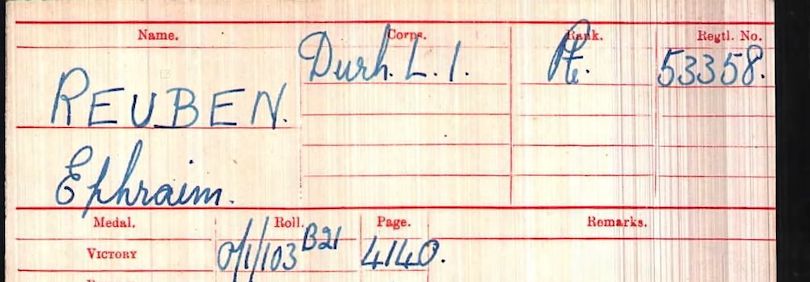 Name. Corps. Rank. Regtl. No.
REUBEN. Durh. L. I. Pte. 53358.
Ephraim.
Medal. Roll. Page. Remarks.
VICTORY O/1/103 B21 4140.